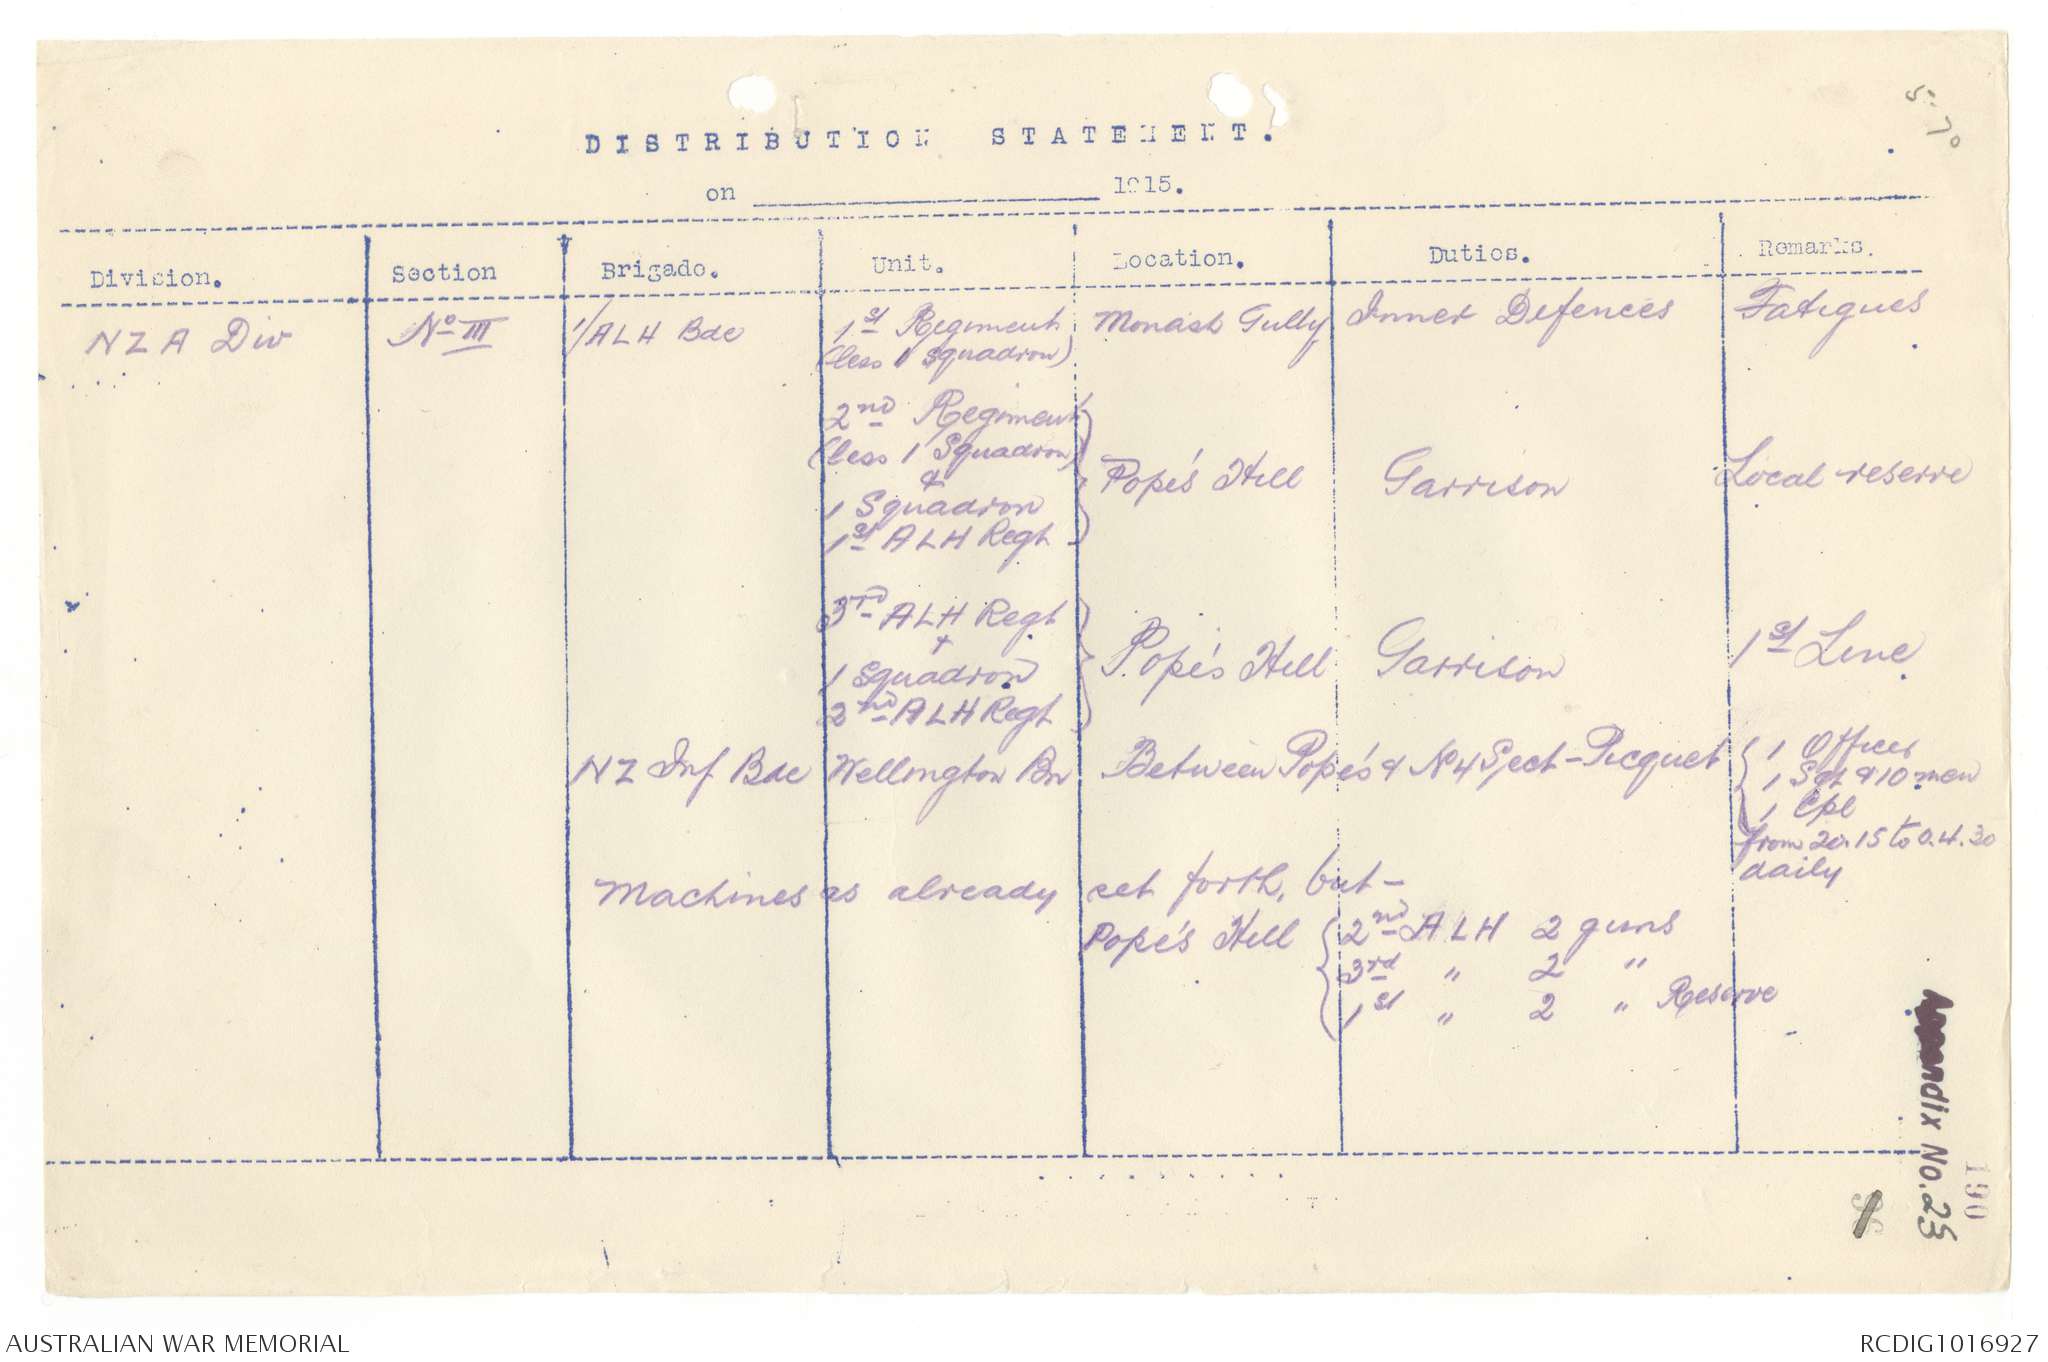 DISTRIBUTION STATEMENT.
on 1915.
Division. Section Brigade. Unit. Location. Duties. Remarks.
NZA Div No III 1/ALH Bde 1st Regiment Monash Gully Inner Defences Fatigues
(less 1 squadron)
2nd Regiment
(less 1 Squadron)
&
1 Squadron
1st ALH Regt
Pope's Hill Garrison Local reserve
3rd ALH Regt
+
1 Squadron
2nd ALH Regt
Pope's Hill Garrison 1st Line
NZ Inf Bde Wellington Bn Between Pope's & No 4 Sect - Picquet
1 Officer
1 Sgt & 10 men
1 Cpl
from 20.15 to 0.4.30
daily
Machines as already set forth, but -
Pope's Hill 2nd ALH 2 guns
3rd " 2 "
1st " 2 " Reserve
Appendix No. 23
190
AUSTRALIAN WAR MEMORIAL
RCDIG1016927